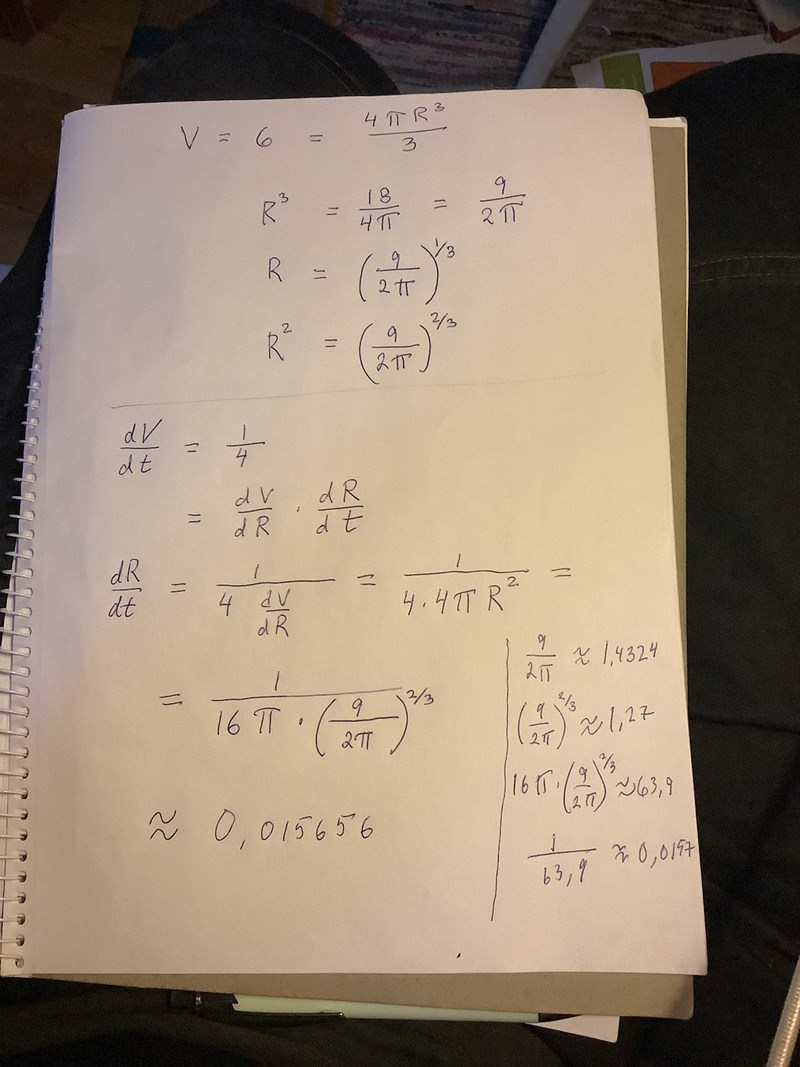 V = 6 = 4πR³/3
R³ = 18/4π = 9/2π
R = (9/2π)^1/3
R² = (9/2π)^2/3
dV/dt = 1/4
= dV/dR · dR/dt
dR/dt = 1/(4 dV/dR) = 1/(4·4πR²) =
= 1/(16π·(9/2π)^2/3)
≈ 0,015656
9/2π ≈ 1,4324
(9/2π)^2/3 ≈ 1,27
16π·(9/2π)^2/3 ≈ 63,9
1/63,9 ≈ 0,0157